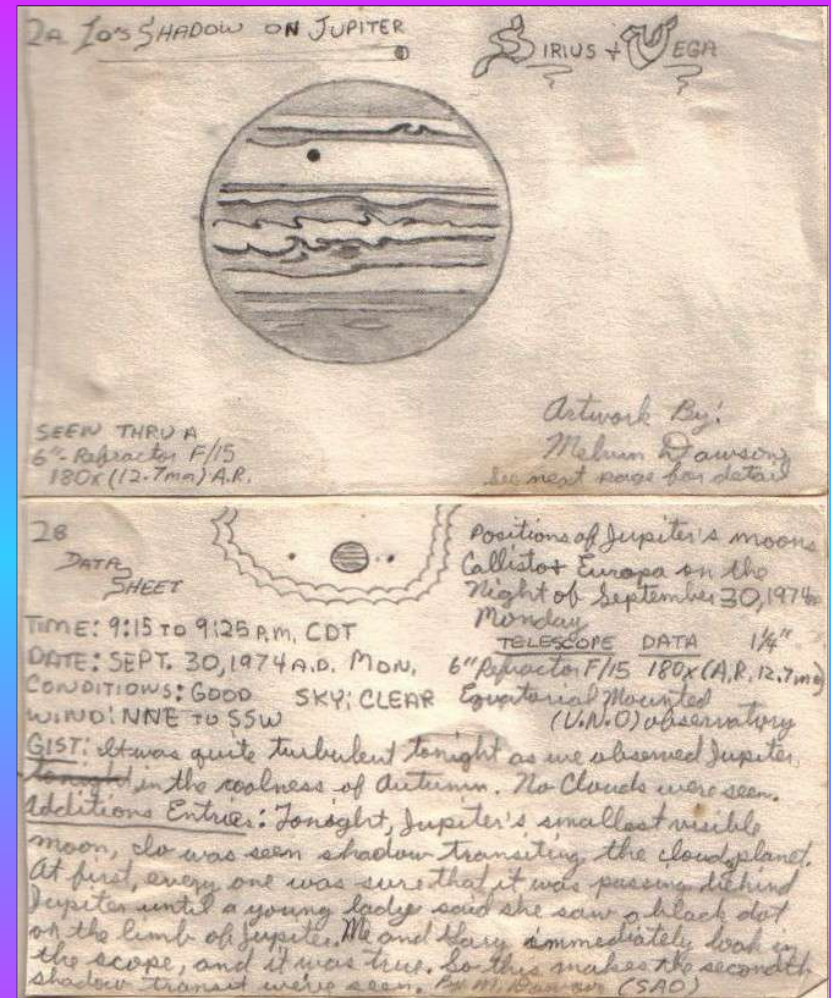 2A Io's SHADOW ON JUPITER
SIRIUS + VEGA
SEEN THRU A
6"- Refractor F/15
180x (12.7mm) A.R.
Artwork By:
Melvin Dawson
See next page for detail
2B
DATA
SHEET
Positions of Jupiter's moons
Callisto & Europa on the
Night of September 30, 1974
Monday
TIME: 9:15 TO 9:25 P.M. CDT
DATE: SEPT. 30, 1974 A.D. MON.
CONDITIONS: GOOD SKY: CLEAR
WIND: NNE TO SSW
TELESCOPE DATA 1¼"
6" Refractor F/15 180x (A.R. 12.7mm)
Equatorial Mounted
(U.N.O) observatory
GIST: It was quite turbulent tonight as we observed Jupiter,
tonight in the coolness of Autumn. No Clouds were seen.
Additions Entries: Tonight, Jupiter's smallest visible
moon, Io was seen shadow transiting the cloudy planet.
At first, every one was sure that it was passing behind
Jupiter until a young lady said she saw a black dot
on the limb of Jupiter. Me and Gary immediately look in
the scope, and it was true. So this makes the secondth
shadow transit we've seen. By M. Dawson (SAO)